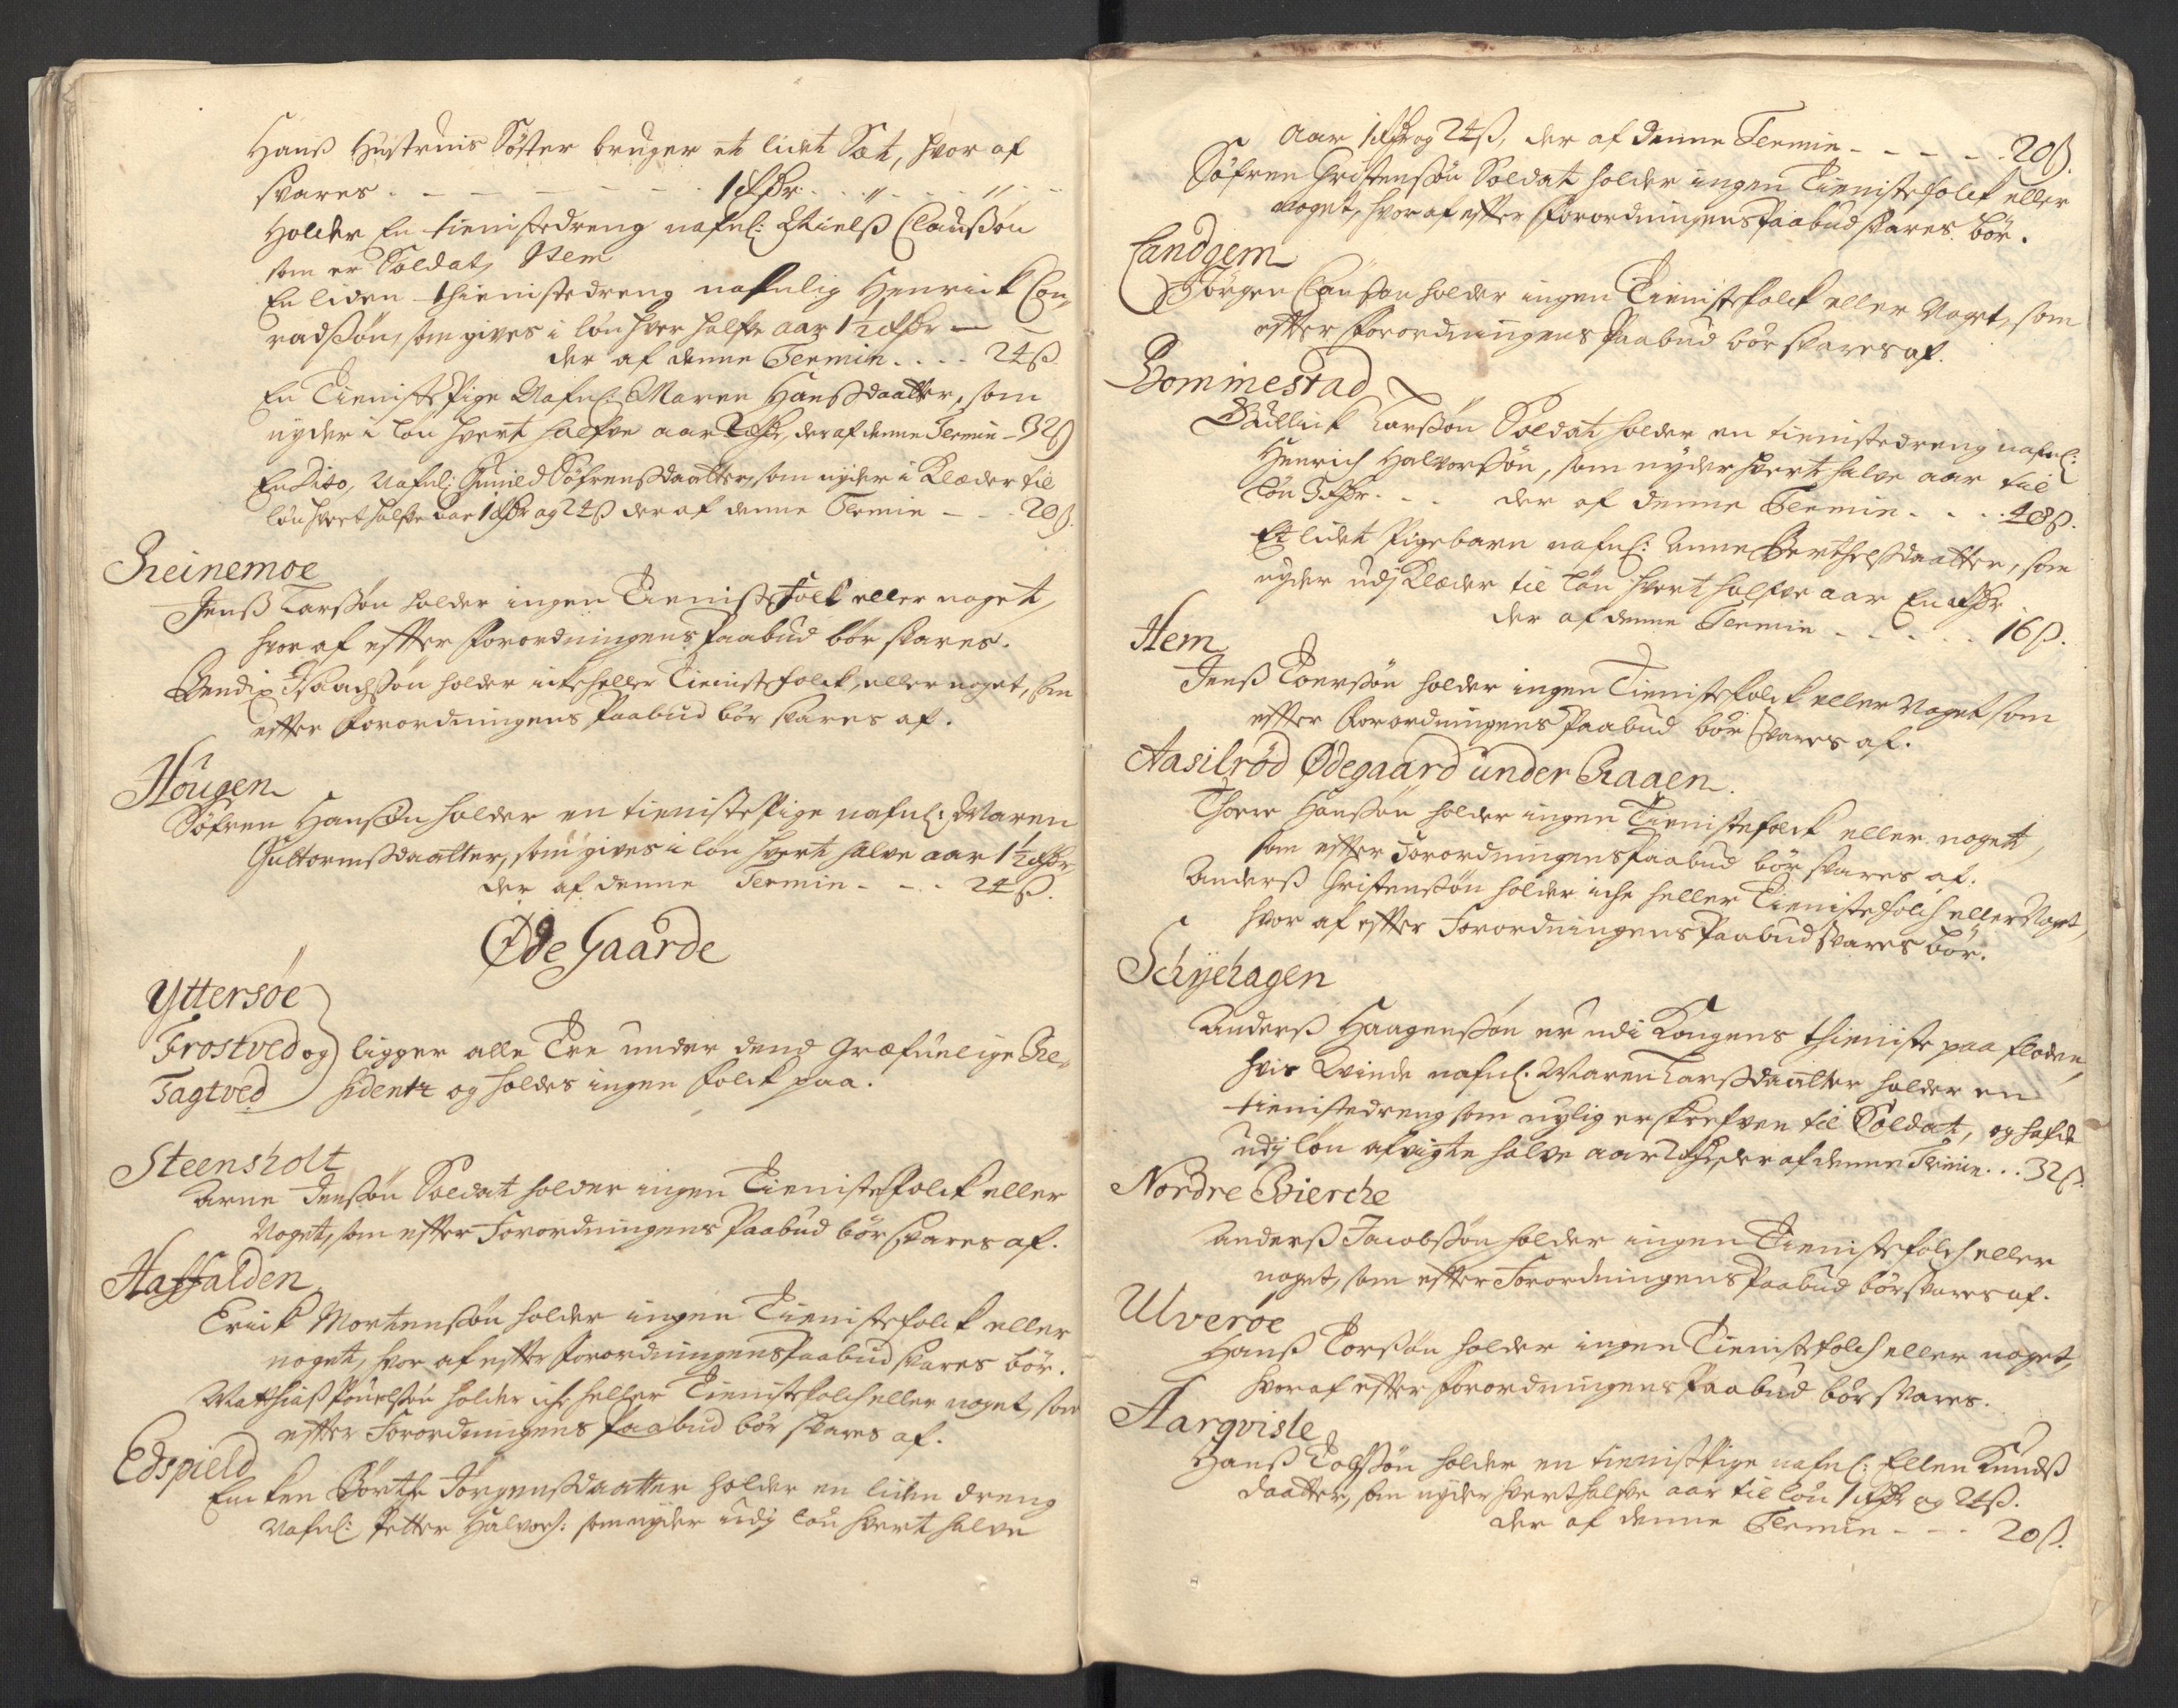 Hanß Hustruis Söster bruger et lidet Sæt, hvor af
svares - - - - - 1 Rdr - - " - - " - -
Holder En tienistedreng nafnl: Nielß Claußøn
som er Soldat, Item
En liden thienistedreng nafnlig Henrick Con-
radsøn, som gives i løn hver halfve aar 1½ Rdr -
der af denne Termin - - - 24 ß
En Tieniste Pige Nafnl: Maren Hansdaatter, som
nyder i løn hvert halfve aar 2 Rdr, der af denne Termin - 32 ß
En Dito, Nafnl: Gunild Söfrensdaatter, som nyder i Klæder til
løn hvert halfve aar 1 Rdr og 24 ß der af denne Termin - - 20 ß.
Reinemoe
Jenß Larsøn holder ingen Tieniste Folk eller noget,
hvor af effter Forordningens Paabud bör svares.
Bendix Isaachsøn holder icke heller Tieniste folck, eller noget, som
effter Forordningens Paabud bör svares af.
Hougen
Söfren Hansøn holder en tieniste Pige nafnl: Maren
Guttormsdaatter, som gives i løn hvert halve aar 1½ Rdr,
der af denne Termin - - - 24 ß.
Øde Gaarde
Yttersöe
Frostved og ligger alle Tre under dend Græfuelige Re-
Fagtved sidentz og holdes ingen folck paa.
Steensholt
Arne Jensøn Soldat holder ingen Tieniste Folck eller
Noget, som effter Forordningens Paabud bör svares af.
Haffalden
Erick Mortensøn holder ingen Tieniste folck eller
noget, hvor af effter Forordningens Paabud svares bör.
Matthiaß Pouelsøn holder icke heller Tieniste folch eller noget, som
effter Forordningens Paabud bör svares af.
Edspield
Encken Börthe Jörgensdaatter holder en liden dreng
Nafnl: Petter Halvors: som nyder udj løn hvert halve
aar 1 Rdr og 24 ß, der af denne Termin - - - - - 20 ß.
Söfren Christensøn Soldat holder ingen Tieniste folck eller
noget, hvor af effter Forordningens Paabud svares bör.
Landgem
Jörgen Claußøn holder ingen Tienistefolck eller Noget, som
effter Forordningens Paabud bör svares af.
Bommestad
Gullick Larsøn Soldat holder en tienistedreng nafnl:
Henrich Halvorsøn, som nyder hvert halve aar til
løn 3 Rdr - - - der af denne Termin - - - 48 ß.
Et lidet Pigebarn nafnl: Anne Berthelsdaatter, som
nyder udj Klæder til løn hvert halfve aar En Rdr
der af denne Termin - - - - - 16 ß.
Hem
Jenß Toersøn holder ingen Tieniste folck eller Noget som
effter Forordningens Paabud bör svares af.
Aasilröd Ødegaard under Raaen.
Thorer Hansøn holder ingen Tienistefolck eller noget,
som effter Forordningens Paabud bör svares af.
Anderß Christensøn holder iche heller Tienistefolch eller Noget,
hvor af effter Forordningens Paabud svares bör.
Schyehagen
Anderß Haagensøn er udi Kongens thieniste paa floden,
hvis Qvinde nafnl: Maren Larsdaatter holder en
tienistedreng som nylig er skrefven til Soldat, og hafde
udj løn afvigte halve aar 2 Rdr, der af denne Termin - - - 32 ß.
Nordre Bierche
Anderß Jacobsøn holder ingen Tienistefolch eller
noget, som effter Forordningens Paabud bör svares af.
Ulveröe
Hanß Torsøn holder ingen Tienistefolch eller noget,
hvor af effter Forordningens Paabud bör svares.
Aarqvisle
Hanß Tolfsøn holder en tienistPige nafnl: Ellen Knuds
daatter, som nyder hvert halfve aar til løn 1 Rdr og 24 ß.
der af denne Termin - - - 20 ß.